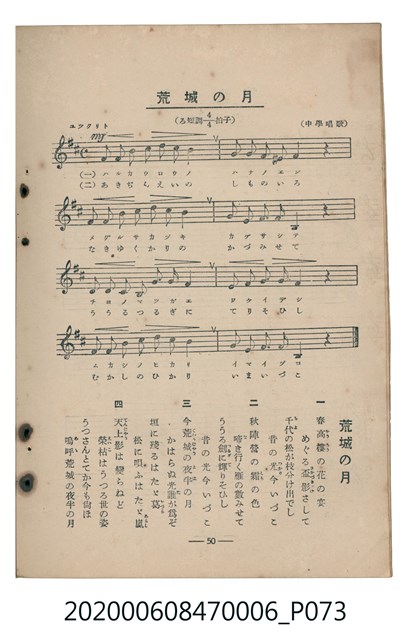 月の城荒
(る短調4/4拍子)
(中學唱歌)
mf
(一)ハルカウロウノ ハナノエン
(二)あきぢんえいの しものいろ
メグルサカヅキ カゲサシテ
なきゆくかりの かずみせて
チヨノマツガエ ワケイデシ
うゝるつるぎに てりそひし
ムカシノヒカリ イマイヅコ
むかしのひかり いまいづこ
荒城の月
一 春高樓の花の宴
めぐる盃影さして
千代の松が枝分け出でし
昔の光今いづこ
二 秋陣營の霜の色
啼き行く雁の數みせて
うゝる劍に輝りそひし
昔の光今いづこ
三 今荒城の夜半の月
かはらぬ光誰が爲ぞ
垣に殘るはたゞ葛
松に唄ふはたゞ嵐
四 天上影は變らねど
榮枯はうつる世の姿
うつさんとてか今も尙ほ
嗚呼荒城の夜半の月
— 50 —
202000608470006_P073